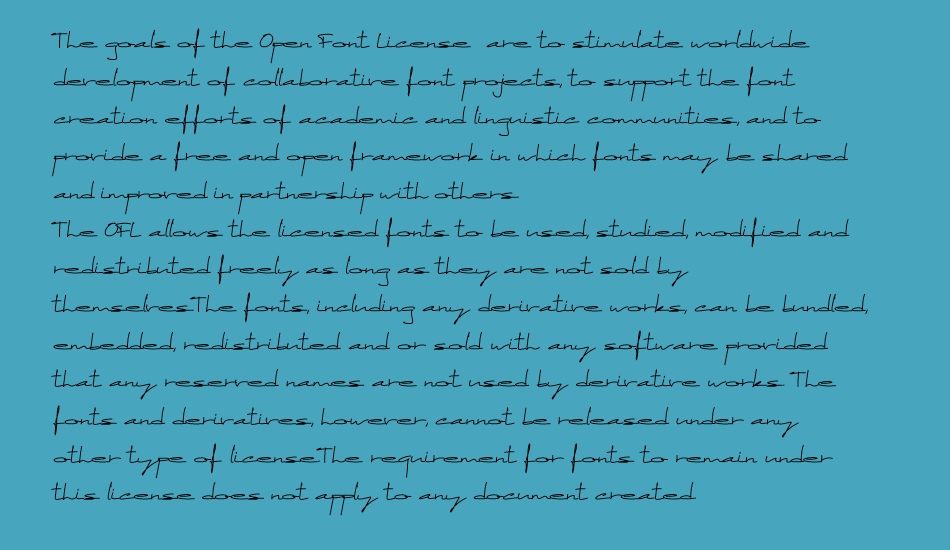 The goals of the Open Font License are to stimulate worldwide
development of collaborative font projects, to support the font
creation efforts of academic and linguistic communities, and to
provide a free and open framework in which fonts may be shared
and improved in partnership with others
The OFL allows the licensed fonts to be used, studied, modified and
redistributed freely as long as they are not sold by
themselvesThe fonts, including any derivative works, can be bundled,
embedded, redistributed and or sold with any software provided
that any reserved names are not used by derivative works The
fonts and derivatives, however, cannot be released under any
other type of licenseThe requirement for fonts to remain under
this license does not apply to any document created